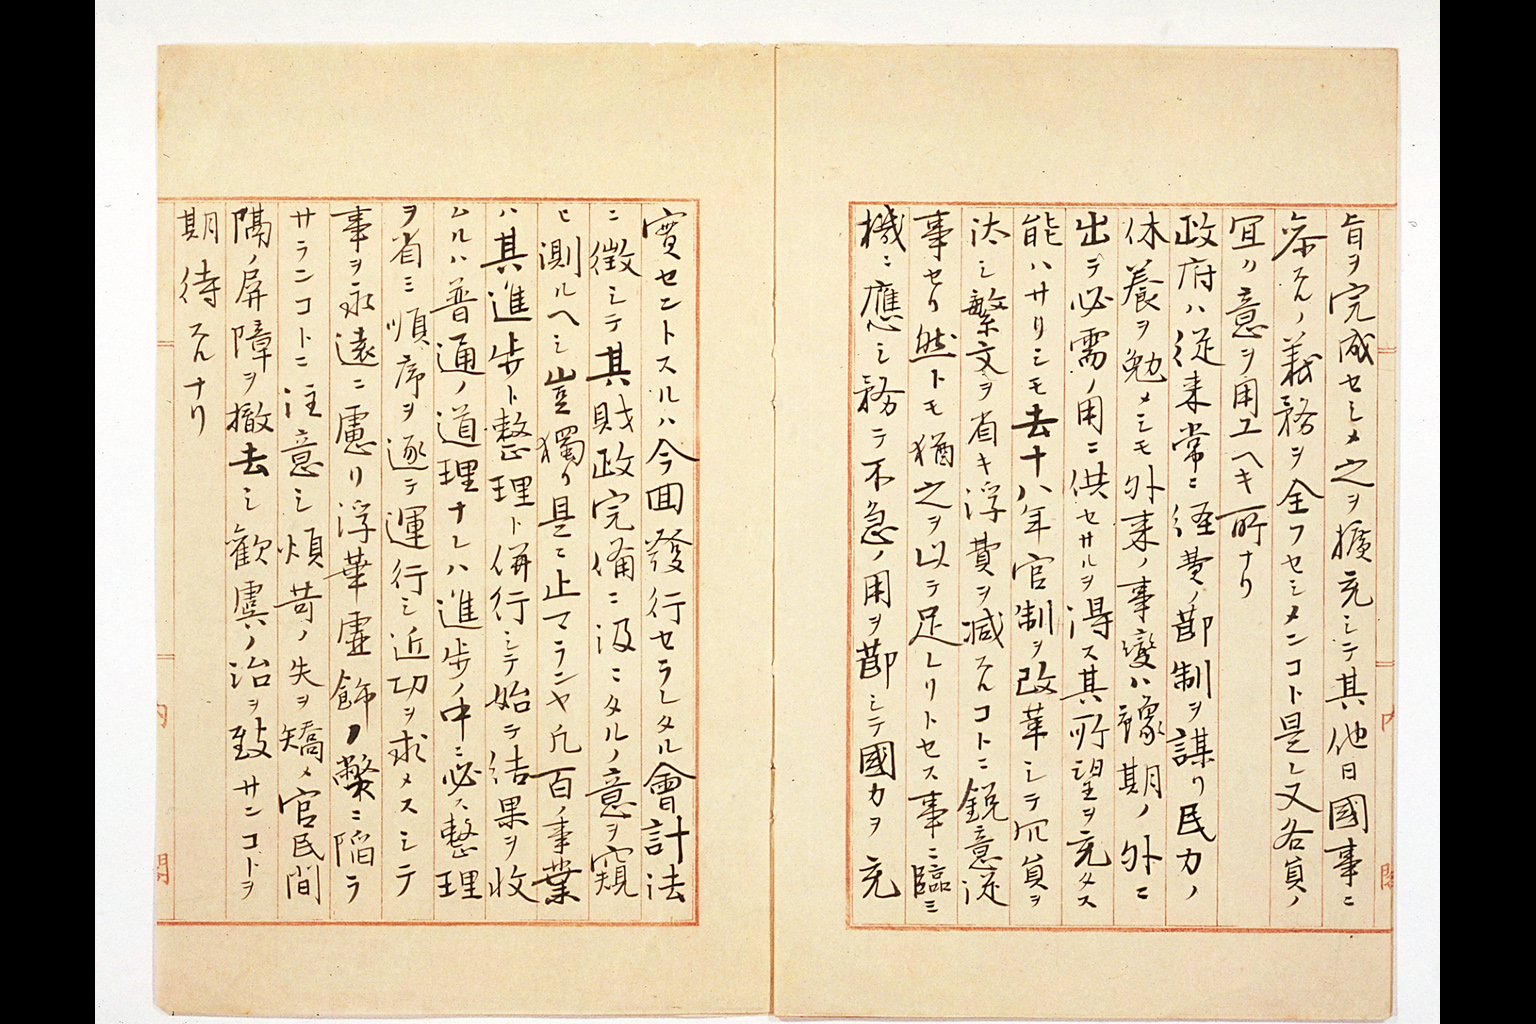 旨ヲ完成セシメ之ヲ擴充シテ其他日國事ニ
参スルノ義務ヲ全フセシメンコト是レ又各員ノ
宜ク意ヲ用ユヘキ所ナリ
政府ハ従来常ニ経費ノ節制ヲ謀リ民力ノ
休養ヲ勉メシモ外来ノ事變ハ豫期ノ外ニ
出テ必需ノ用ニ供セサルヲ得ス其所望ヲ充タス
能ハサリシモ去十八年官制ヲ改革シテ冗員ヲ
汰シ繁文ヲ省キ浮費ヲ減スルコトニ鋭意従
事セリ然トモ猶之ヲ以テ足レリトセス事ニ臨ミ
機ニ應シ務テ不急ノ用ヲ節シテ國力ヲ充
實セントスルハ今回發行セラレタル會計法
ニ徴シテ其財政完備ニ汲ニタルノ意ヲ窺
ヒ測ルヘシ豈獨リ是ニ止マランヤ凡百ノ事業
ハ其進歩ト整理ト併行シテ始テ結果ヲ收
ムルハ普通ノ道理ナレハ進歩ノ中ニ必ス整理
ヲ省ミ順序ヲ逐テ運行シ近功ヲ求メスシテ
事ヲ永遠ニ慮リ浮華虚飾ノ弊ニ陥ラ
サランコトニ注意シ煩苛ノ失ヲ矯メ官民間
隔ノ屏障ヲ撤去シ歡虞ノ治ヲ致サンコトヲ
期待スルナリ
内
閣
内
閣